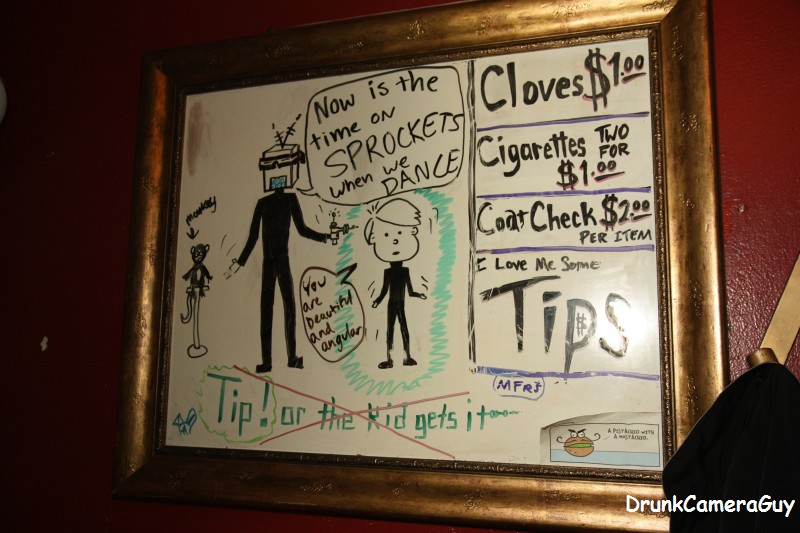 Now is the
time on
SPROCKETS
when we
DANCE
monkey
You
are
beautiful
and
angular
Tip! or the Kid gets it
Cloves $1.00
Cigarettes TWO
FOR
$1.00
Coat Check $2.00
PER ITEM
I Love Me Some
Tips
MFRS
A PISTACHIO WITH
A MUSTACHIO.
DrunkCameraGuy